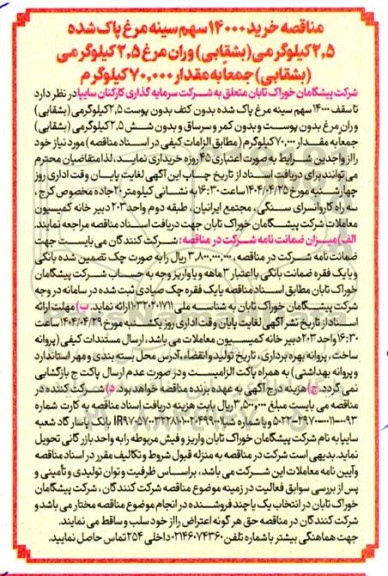 مناقصه خرید ۱۴۰۰۰ سهم سینه مرغ پاک شده
۲٫۵ کیلوگرمی (بشقابی) و ران مرغ ۲٫۵ کیلوگرمی
(بشقابی) جمعا به مقدار ۷۰٫۰۰۰ کیلوگرم
شرکت پیشگامان خوراک تابان متعلق به شرکت سرمایه گذاری کارکنان سایپا در نظر دارد
تا سقف ۱۴۰۰۰ سهم سینه مرغ پاک شده بدون کتف بدون پوست ۲٫۵ کیلوگرمی (بشقابی)
و ران مرغ بدون پوست و بدون کمر و سرساق و بدون شش ۲٫۵ کیلوگرمی (بشقابی)
جمعا به مقدار ۷۰٫۰۰۰ کیلوگرم (مطابق الزامات کیفی در اسناد مناقصه) مورد نیاز خود
را از واجدین شرایط به صورت اعتباری ۴۵ روزه خریداری نمایند. لذا متقاضیان محترم
می توانند برای دریافت اسناد از تاریخ چاپ این آگهی لغایت پایان وقت اداری روز
چهارشنبه مورخ ۱۴۰۴/۰۴/۲۵ ساعت ۱۶:۳۰ به نشانی کیلومتر ۲۰ جاده مخصوص کرج،
سه راه کاروانسرای سنگی، مجتمع ایرانیان، طبقه دوم واحد ۲۰۳ دبیر خانه کمیسیون
معاملات شرکت پیشگامان خوراک تابان جهت دریافت اسناد مناقصه مراجعه نمایند.
الف) میزان ضمانت نامه شرکت در مناقصه: شرکت کنندگان می بایست جهت
ضمانت نامه شرکت در مناقصه، ۳٫۸۰۰٫۰۰۰٫۰۰۰ ریال را به صورت چک تضمین شده بانکی
و یا یک فقره ضمانت بانکی با اعتبار ۳ ماهه و یا واریز وجه به حساب شرکت پیشگامان
خوراک تابان مطابق اسناد مناقصه یا یک فقره چک صیادی ثبت شده در سامانه در وجه
شرکت پیشگامان خوراک تابان به شناسه ملی ۱۰۳۲۰۲۰۱۷۱۱ ارائه نماید. ب) مهلت ارائه
اسناد از تاریخ نشر آگهی لغایت پایان وقت اداری روز یکشنبه مورخ ۱۴۰۴/۰۴/۲۹ ساعت
۱۶:۳۰ واحد ۲۰۳ دبیر خانه کمیسیون معاملات می باشد. ارسال مستندات کیفی (پروانه
ساخت، پروانه بهره برداری، تاریخ تولید و انقضاء، آدرس محل بسته بندی و مهر استاندارد
و پروانه بهداشتی) به همراه پاکت الزامیست و در صورت عدم ارسال پاکت ج بازگشایی
نمی گردد. ج) هزینه درج آگهی به عهده برنده مناقصه خواهد بود. د) شرکت کننده در
مناقصه می بایست مبلغ ۳٫۵۰۰٫۰۰۰ ریال بابت هزینه دریافت اسناد مناقصه به کارت شماره
بانک پاسارگاد شعبه
سایپا به نام شرکت پیشگامان خوراک تابان واریز و فیش مربوطه را به واحد بازرگانی تحویل
نماید. بدیهی است شرکت در مناقصه به منزله قبول شروط و تکالیف مقرر در اسناد مناقصه
و آیین نامه معاملات این شرکت می باشد، براساس ظرفیت و توان تولیدی و تأمینی و
پس از بررسی سوابق فعالیت در زمینه موضوع مناقصه شرکت کنندگان، شرکت پیشگامان
خوراک تابان در انتخاب یک یا چند فروشنده در انجام موضوع مناقصه مختار می باشد و
شرکت کنندگان در مناقصه حق هر گونه اعتراض را از خود سلب و ساقط می نمایند.
جهت هماهنگی بیشتر با شماره تلفن ۰۲۱۴۶۰۷۴۳۶۰ داخلی ۲۵۴ تماس حاصل نمایید.